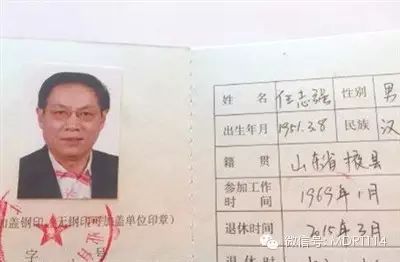 姓名 任志强 性别 男
出生年月 1951.3.8 民族 汉
籍贯 山东省掖县
参加工作时间 1969年1月
退休时间 2015年3月
加盖钢印,无钢印可加盖单位印章)
字
微信号: MDRT114